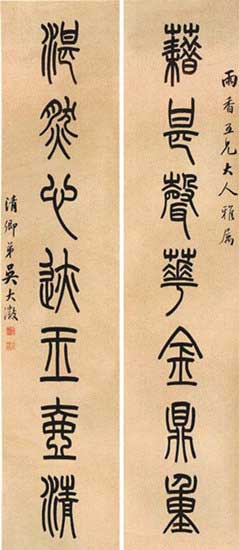 雨香五兄大人雅属
藉甚聲華金鼎重
湛然心迹玉壺清
清卿弟吳大澂